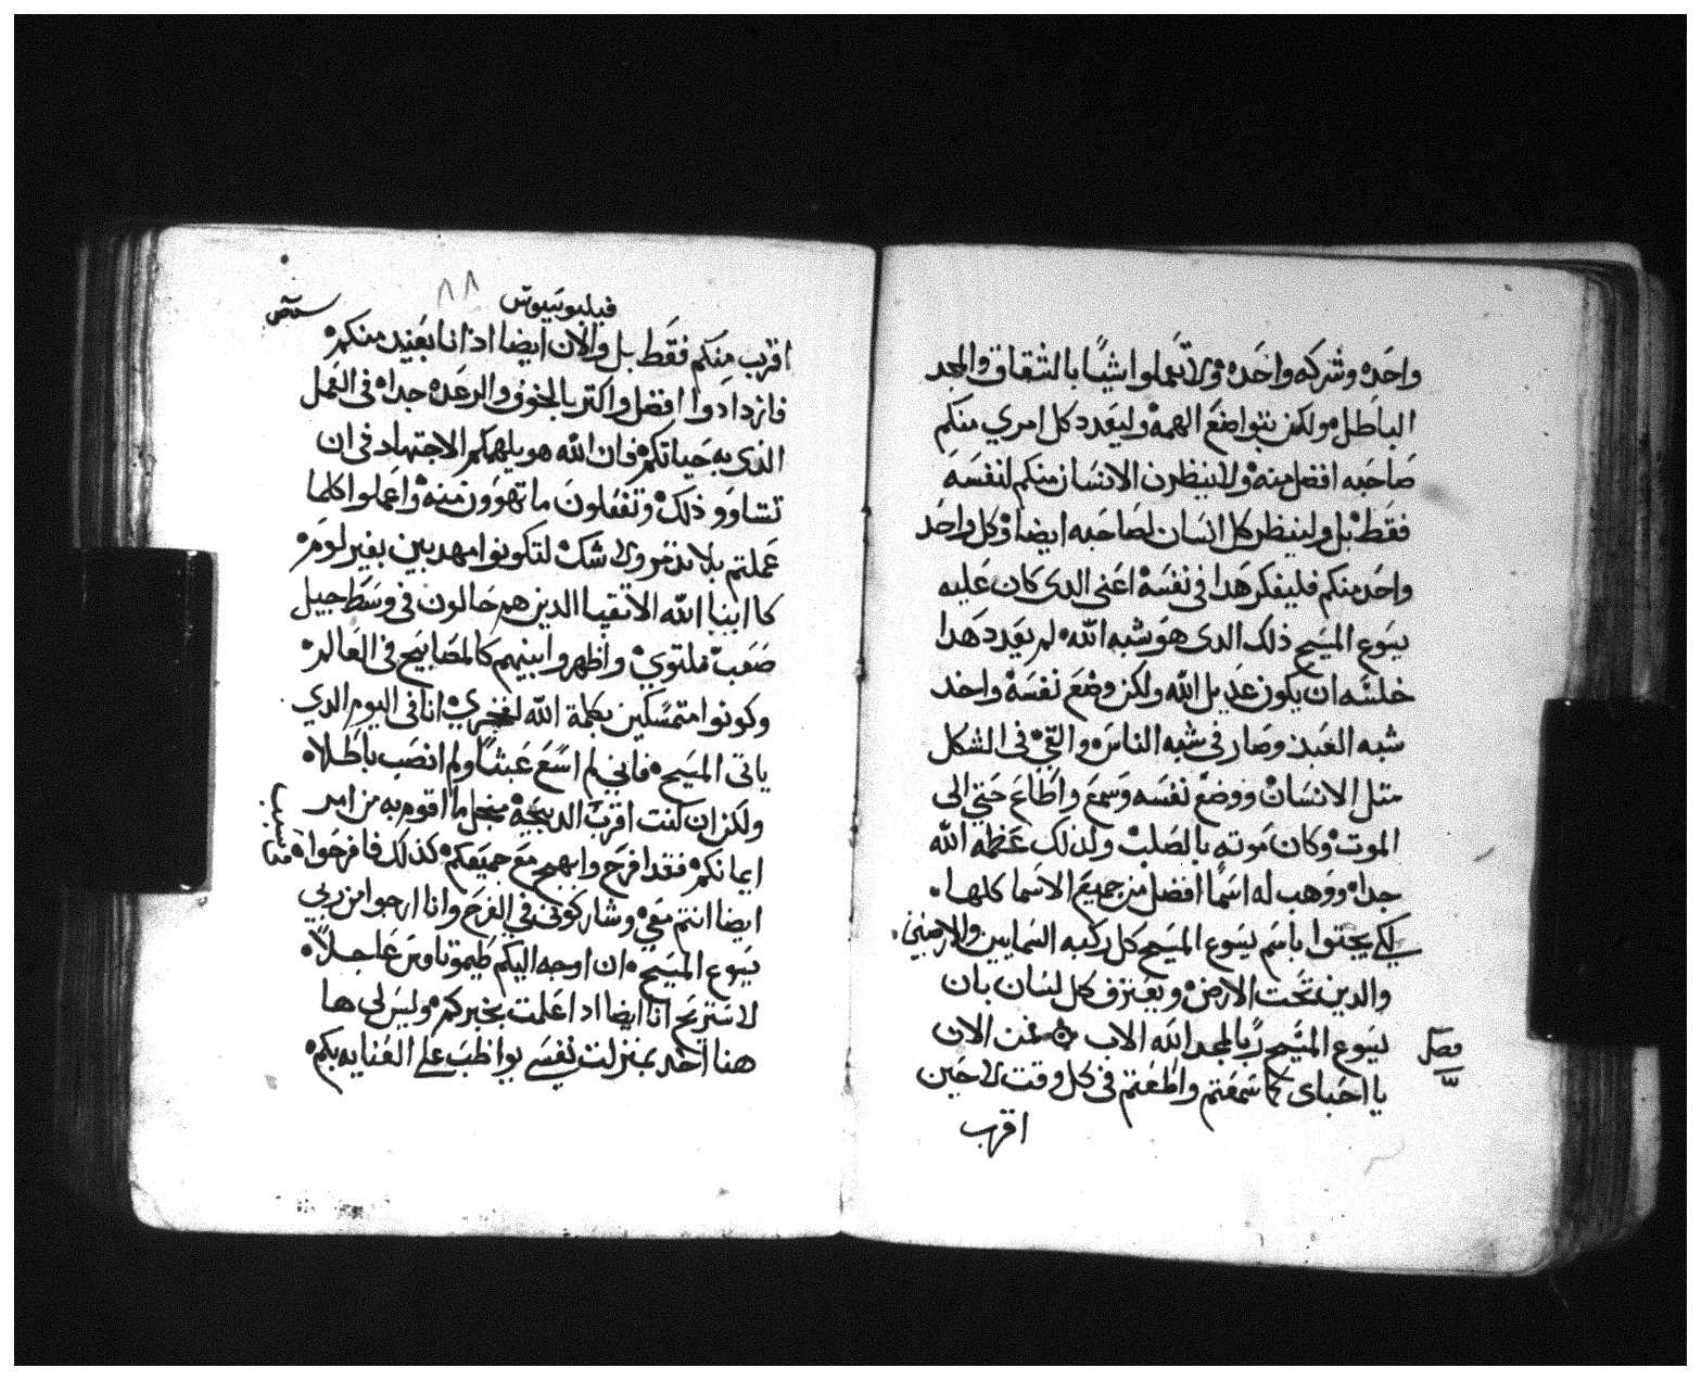 واحده وشركه واحده ولا تعملوا شيًا بالشقاق والمجد
الباطل ولكن بتواضع الهمه وليعدد كل امري منكم
صاحبه افضل منه ولا ينظرن الانسان منكم لنفسه
فقط بل ولينظر كل انسان لصاحبه ايضا وكل واحد
واحد منكم فليفكر هدا في نفسه اعنى الدى كان عليه
يسوع المسيح ذلك الدى هو شبه الله لم يعدد هدا
خلسه ان يكون عديل الله ولكن وضع نفسه واخد
شبه العبد وصار في شبه الناس والقي في الشكل
متل الانسان ووضع نفسه وسمع واطاع حتي الى
الموت وكان موته بالصلب ولذلك عظمه الله
جدا ووهب له اسمًا افضل من جميع الاسما كلها
لكي يجتوا باسم يسوع المسيح كل ركبه السمايين والارضيين
والدين تحت الارض ويعترف كل لسان بان
يسوع المسيح ربًا لمجد الله الاب فمن الان
فصل
يا احباى كما سمعتم واطعتم في كل وقت لا حين
اقرب
فيلبوسيوس
٨٨
اقرب منكم فقط بل والان ايضا اذ انا بعيد منكم
فازدادوا افضل واكتر بالخوف والرعده جدا في العمل
الذى به حياتكم فان الله هو يلهمكم الاجتهاد في ان
تشاوو ذلك وتفعلون ما تهوون منه واعملوا كلما
عملتم بلا تذمر ولا شك لتكونوا مهدبين بغير لوم
كا ابنا الله الاتقيا الدين هم حالون في وسط جيل
صعب ملتوي واظهروا بينهم كالمصابيح في العالم
وكونوا متمسكين بكلمة الله لفخري انا في اليوم الدي
ياتى المسيح فاني لم اسع عبثًا ولم انصب باطلا
ولكن ان كنت اقرب الدبيحة من اجل ما اقوم به من امر
ايمانكم فقد افرح وابهج مع جميعكم كذلك فافرحوا
ايضا انتم معي وشاركوني في الفرح وانا ارجوا من ربي
يسوع المسيح ان اوجه اليكم طيموتاوس عاجلاً
لاستريح انا ايضا ادا علمت بخبركم وليس لى ها
هنا احد بمنزلت نفسي يواظب على العنايه بكم